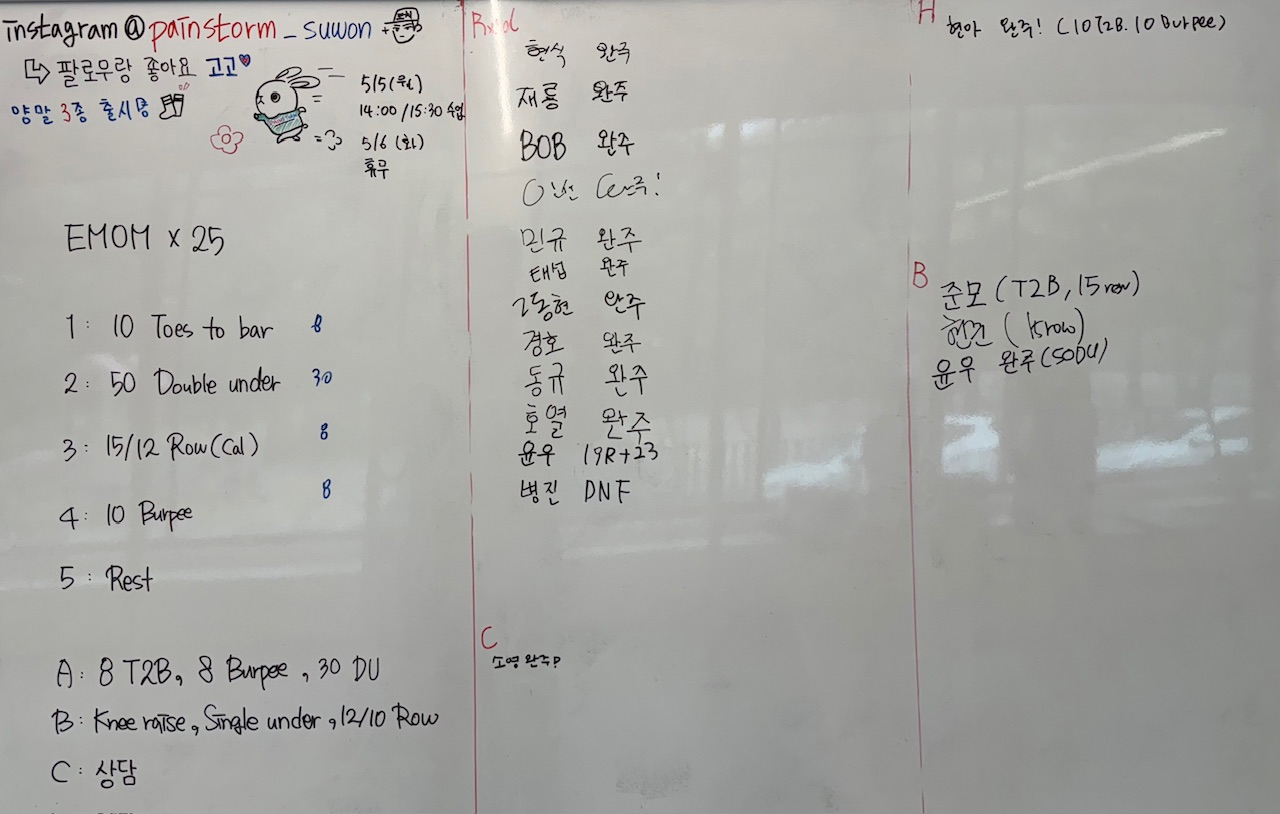 instagram @ painstorm _ suwon
팔로우랑 좋아요 고고
양말 3종 출시중
5/5 (월)
14:00 / 15:30 수업
5/6 (화)
휴무
EMOM x 25
1: 10 Toes to bar 8
2: 50 Double under 30
3: 15/12 Row (Cal) 8
4: 10 Burpee 8
5: Rest
A: 8 T2B, 8 Burpee, 30 DU
B: Knee raise, Single under, 12/10 Row
C: 상담
Rx'd
현식 완주
재룡 완주
BOB 완주
민규 완주
태섭 완주
완주
경호 완주
동규 완주
호열 완주
윤우 19R+23
병진 DNF
C
소영 완주?
현아 완주! (10 T2B. 10 Burpee)
B
준모 (T2B, 15 row)
(15row)
윤우 완주 (50DU)